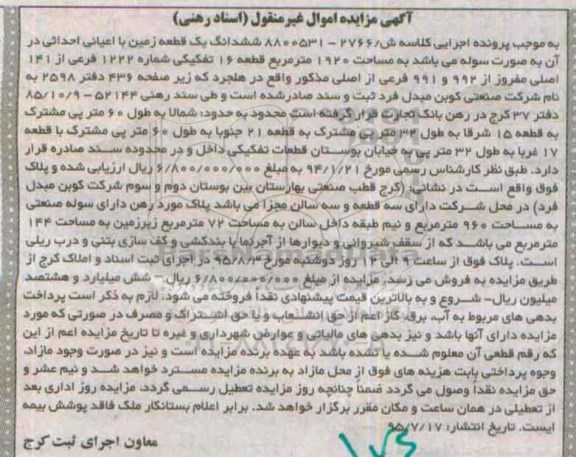 آگهی مزایده اموال غیرمنقول (اسناد رهنی)
به موجب پرونده اجرایی کلاسه ش/۲۷۶۶ - ۸۸۰۰۵۳۱ ششدانگ یک قطعه زمین با اعیانی احداثی در
آن به صورت سوله می باشد به مساحت ۱۹۲۰ مترمربع قطعه ۱۶ تفکیکی شماره ۱۲۲۲ فرعی از ۱۴۱
اصلی مفروز از ۹۹۲ و ۹۹۱ فرعی از اصلی مذکور واقع در هلجرد که زیر صفحه ۴۳۶ دفتر ۲۵۹۸ به
نام شرکت صنعتی کوبن مبدل فرد ثبت و سند صادرشده است و طی سند رهنی ۵۲۱۴۴ - ۸۵/۱۰/۹
دفتر ۳۷ کرج در رهن بانک تجارت قرار گرفته است محدود به حدود: شمالا به طول ۶۰ متر پی مشترک
به قطعه ۱۵ شرقا به طول ۳۲ متر پی مشترک به قطعه ۲۱ جنوبا به طول ۶۰ متر پی مشترک با قطعه
۱۷ غربا به طول ۳۲ متر پی به خیابان بوستان قطعات تفکیکی داخل و در محدوده سند صادره قرار
دارد. طبق نظر کارشناس رسمی مورخ ۹۴/۱/۲۱ به مبلغ ۶/۸۰۰/۰۰۰/۰۰۰ ریال ارزیابی شده و پلاک
فوق واقع است در نشانی: (کرج قطب صنعتی بهارستان بین بوستان دوم و سوم شرکت کوبن مبدل
فرد) در محل شرکت دارای سه قطعه و سه سالن مجزا می باشد پلاک مورد رهن دارای سوله صنعتی
به مساحت ۹۶۰ مترمربع و نیم طبقه داخل سالن به مساحت ۷۲ مترمربع زیرزمین به مساحت ۱۴۴
مترمربع می باشد که از سقف شیروانی و دیوارها از آجرنما با بندکشی و کف سازی بتنی و درب ریلی
است. پلاک فوق از ساعت ۹ الی ۱۲ روز دوشنبه مورخ ۹۵/۸/۳ در اجرای ثبت اسناد و املاک کرج از
طریق مزایده به فروش می رسد. مزایده از مبلغ ۶/۸۰۰/۰۰۰/۰۰۰ ریال - شش میلیارد و هشتصد
میلیون ریال- شروع و به بالاترین قیمت پیشنهادی نقدا فروخته می شود. لازم به ذکر است پرداخت
بدهی های مربوط به آب، برق، گاز اعم از حق انشعاب و یا حق اشتراک و مصرف در صورتی که مورد
مزایده دارای آنها باشد و نیز بدهی های مالیاتی و عوارض شهرداری و غیره تا تاریخ مزایده اعم از این
که رقم قطعی آن معلوم شده یا نشده باشد به عهده برنده مزایده است و نیز در صورت وجود مازاد،
وجوه پرداختی بابت هزینه های فوق از محل مازاد به برنده مزایده مسترد خواهد شد و نیم عشر و
حق مزایده نقدا وصول می گردد ضمنا چنانچه روز مزایده تعطیل رسمی گردد، مزایده روز اداری بعد
از تعطیلی در همان ساعت و مکان مقرر برگزار خواهد شد. برابر اعلام بستانکار ملک فاقد پوشش بیمه
ایست. تاریخ انتشار: ۹۵/۷/۱۷
معاون اجرای ثبت کرج